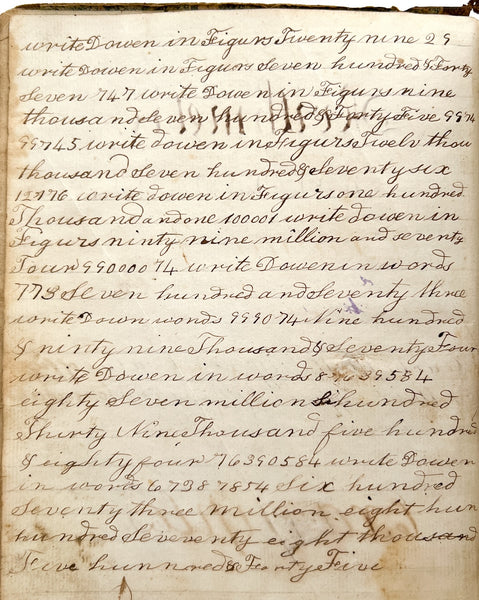 write Dowen in Figurs Twenty nine 29
write Dowen in Figurs Seven hundred & Forty
Seven 747 write Dowen in Figurs nine
thousand Seven hundred & Forty Five 9974
99745 write dowen in Figurs Twelv thou
thousand Seven hundred & Seventy six
12776 write dowen in Figurs one hundred
Thousand and one 100001 write dowen in
Figurs ninty nine million and seventy
Four 99000074 write Dowen in words
773 Seven hundred and Seventy three
write Down words 999074 Nine hundred
& ninty nine Thousand & Seventy Four
write Dowen in words 639584
eighty Seven million Six hundred
Thirty Nine Thousand five hundred
& eighty four 76390584 write Dowen
in words 673878 54 Six hundred
Seventy three million eight hun
hundred Seveventy eight thousand
Five hunnored & Forty Five